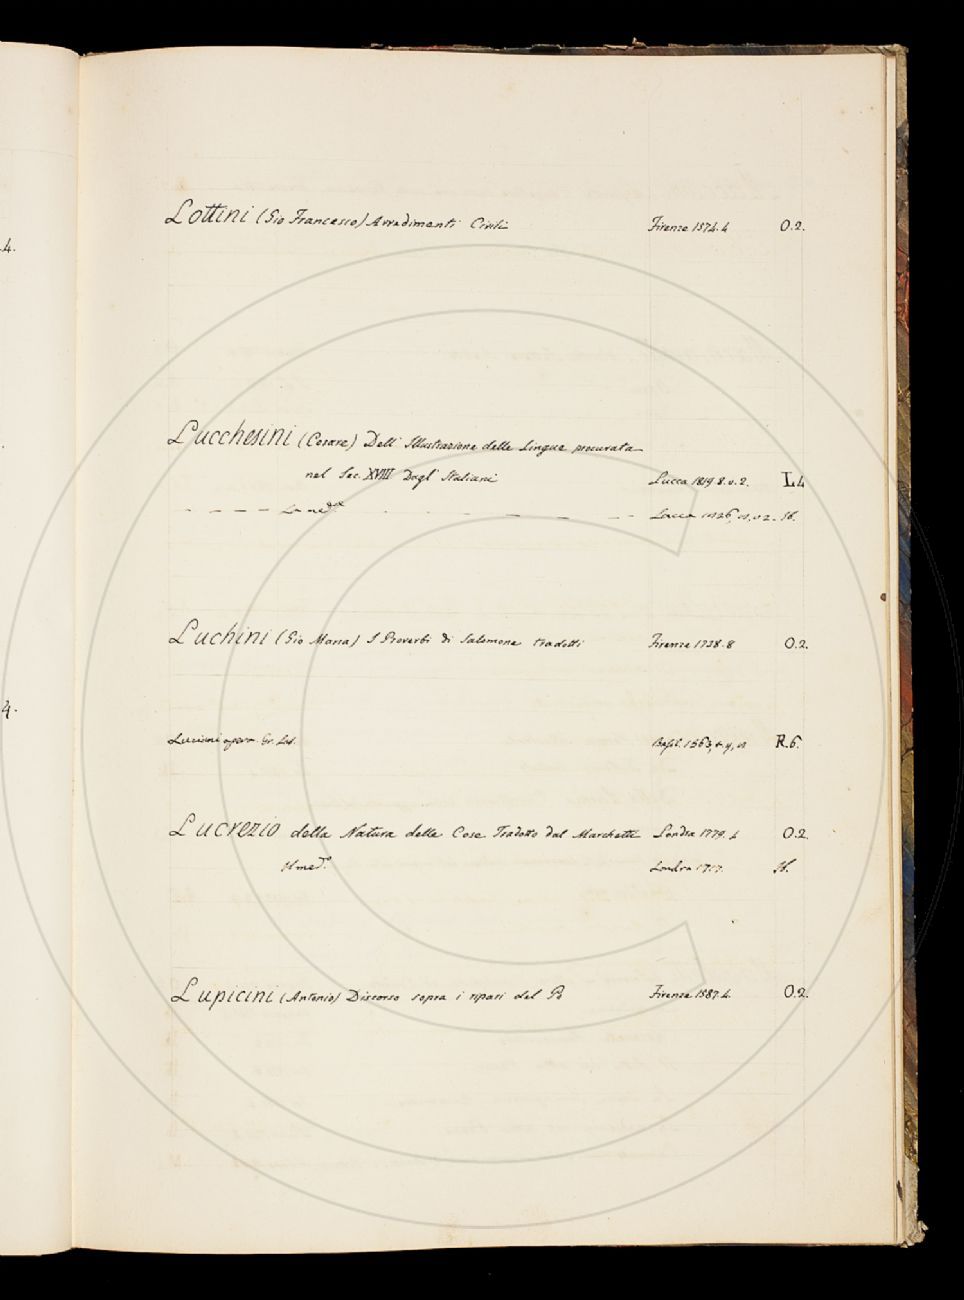 4.
Lottini (Gio Francesco) Avvedimenti Civili Firenze 1574. 4 O.2.
Lucchesini (Cesare) Dell' Illustrazione delle Lingue procurata
nel Sec. XVIII Dagl' Italiani Lucca 1819. 8. v. 2. L4
La med.a Lucca 1826, 8, v 2. Ib.
Luchini (Gio Maria) I Proverbi di Salomone tradotti Firenze 1738. 8 O.2.
4.
Luciani opera Gr. Lat. Basil. 1563, 4 v, 8 R.6.
Lucrezio della Natura delle Cose Tradotto dal Marchetti Londra 1779. 4 O.2
Il med.o Londra 1717. Ib.
Lupicini (Antonio) Discorso sopra i ripari del Po Firenze 1587. 4. O.2.
C